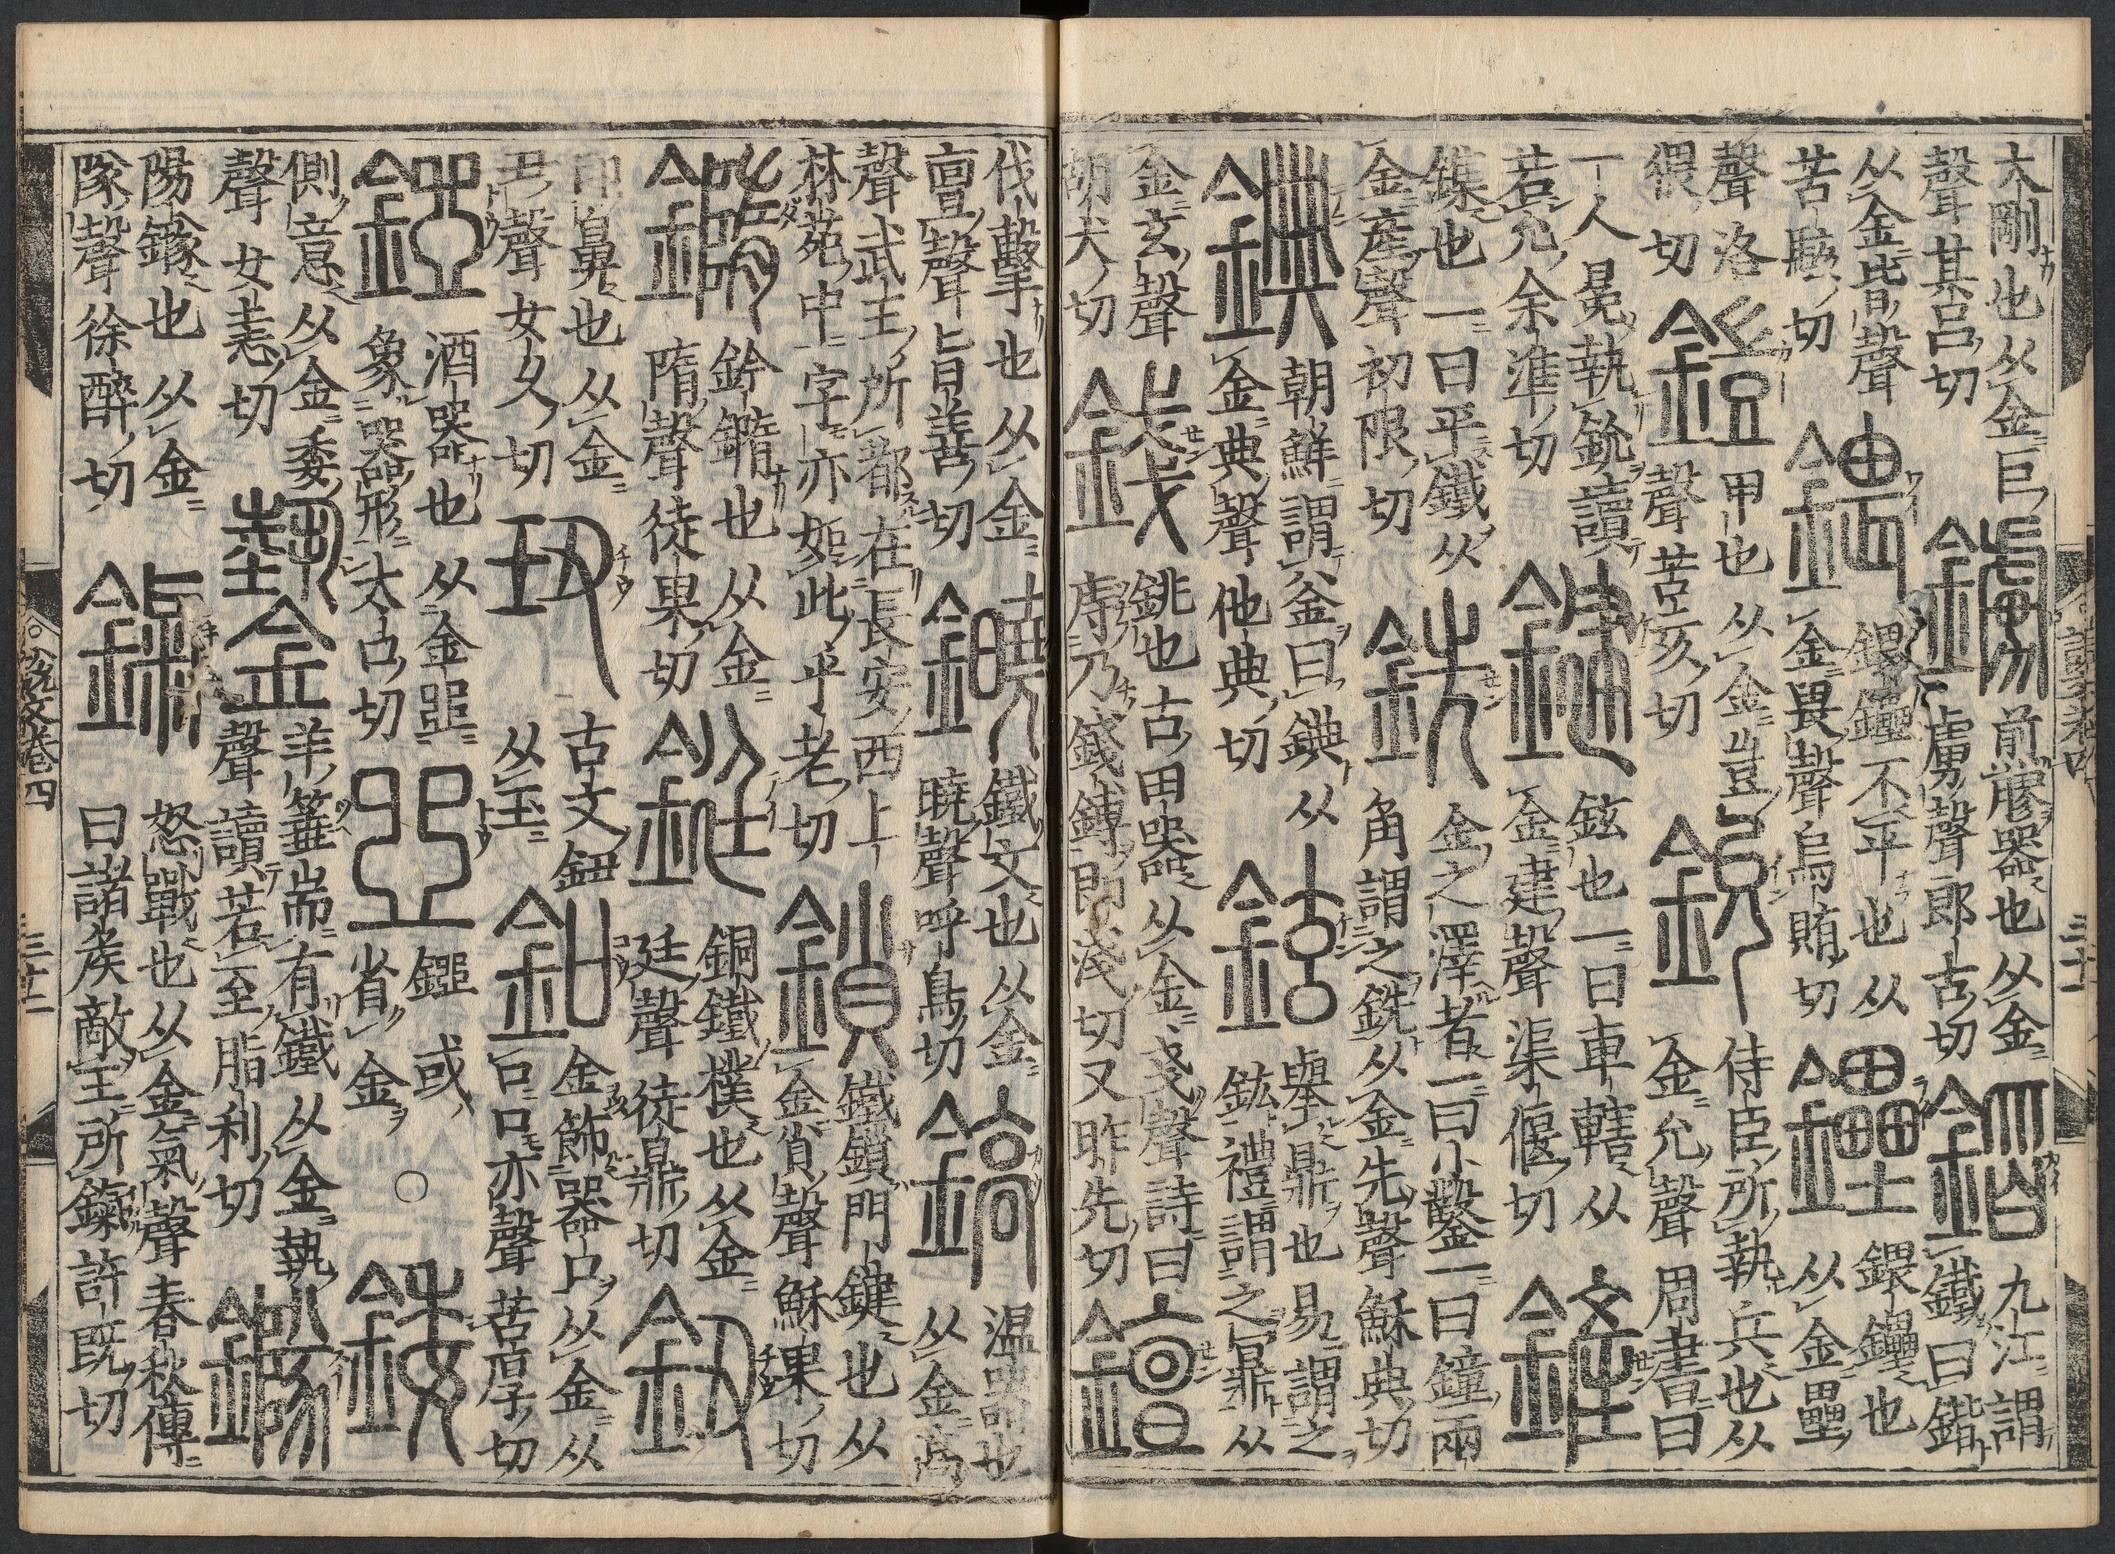 大剛也从金巨
聲其呂切
鐪
煎膠器也从金
虜聲郎古切
鍇
九江謂
鐵曰鍇
从金皆聲
苦駭切
鍡
鍡鑸不平也从
金畏聲烏賄切
鑸
鍡鑸也
从金壘
聲洛
猥切
鎧
甲也从金豈
聲苦亥切
鈗
侍臣所執兵也从
金允聲周書曰
一人冕執鈗讀
若允余準切
鍵
鉉也一曰車轄从
金建聲渠偃切
鏟
鏶也一曰平鐵从
金產聲初限切
銑
金之澤者一曰小鑿一曰鐘兩
角謂之銑从金先聲穌典切
錪
朝鮮謂釜曰錪从
金典聲他典切
鉉
舉鼎也易謂之
鉉禮謂之鼏从
金玄聲
胡犬切
錢
銚也古田器从金戔聲詩曰
庤乃錢鎛即淺切又昨先切
說文卷四
三十一
伐擊也从金
亶聲旨善切
鐵文也从金
曉聲呼鳥切
鎬
温器也
从金高
聲武王所都在長安西上
林苑中字亦如此乎老切
鎖
鐵鎖門鍵也从
金𧴪聲穌果切
䥯
鈐䥯也从金
隋聲徒果切
鋌
銅鐵樸也从金
廷聲徒鼎切
鈕
印鼻也从金
丑聲女久切
古文鈕
从玉
釦
金飾器口从金从
口口亦聲苦厚切
酒器也从金
象器形大口切
或
省金
○
錗
側意从金委
聲女恚切
羊箠耑有鐵从金執
聲讀若至脂利切
鐆
陽鐆也从金
隊聲徐醉切
鎎
怒戰也从金氣聲春秋傳
曰諸矦敵王所鎎許既切
說文卷四
三十二